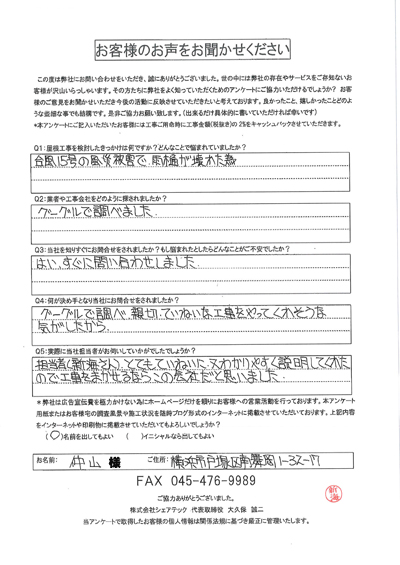 お客様のお声をお聞かせください
この度は弊社にお問い合わせをいただき、誠にありがとうございました。世の中には弊社の存在やサービスをご存知ないお
客様が沢山いらっしゃいます。その方たちに弊社をよく知っていただくためのアンケートにご協力いただけるでしょうか？ お客
様のご意見をお聞かせいただき今後の活動に反映させていただきたいと考えております。良かったこと、嬉しかったことどのよ
うな些細な事でも結構です。是非ご協力お願い致します。（出来るだけ具体的に書いていただければ幸いです）
*本アンケートにご記入いただいたお客様には工事ご用命時に工事金額(税抜き)の 2%をキャッシュバックさせていただきます。
Q1:屋根工事を検討したきっかけは何ですか？どんなことで悩まれていましたか？
台風15号の風災被害で、雨樋が壊れた為
Q2:業者や工事会社をどのように探されましたか？
グーグルで調べました。
Q3:当社を知りすぐにお問合せをされましたか？もし悩まれたとしたらどんなことがご不安でしたか？
はい、すぐに問い合わせしました。
Q4:何が決め手となり当社にお問合せをされましたか？
グーグルで調べ、親切、ていねいな工事をやってくれそうな
気がしたから。
Q5:実際に当社担当者がお伺いしていかがでしたでしょうか？
担当者(新海さん)とてもていねいに、又わかりやすく説明してくれた
ので工事をまかせるならこの会社だと思いました。
*弊社は広告宣伝費を極力かけない為にホームページだけを頼りにお客様への営業活動を行っております。本アンケート
用紙またはお客様宅の調査風景や施工状況を随時ブログ形式のインターネットに掲載させていただいております。上記内容
をインターネットや印刷物に掲載させていただいてもよろしいでしょうか？
（○）名前を出してもよい （ ）イニシャルなら出してもよい
お名前: 仲山 様 ご住所: 横浜市戸塚区南舞岡1-32-17
FAX 045-476-9989
新海
ご協力ありがとうございました。
株式会社シェアテック 代表取締役 大久保 誠二
当アンケートで取得したお客様の個人情報は関係法規に基づき厳正に管理いたします。